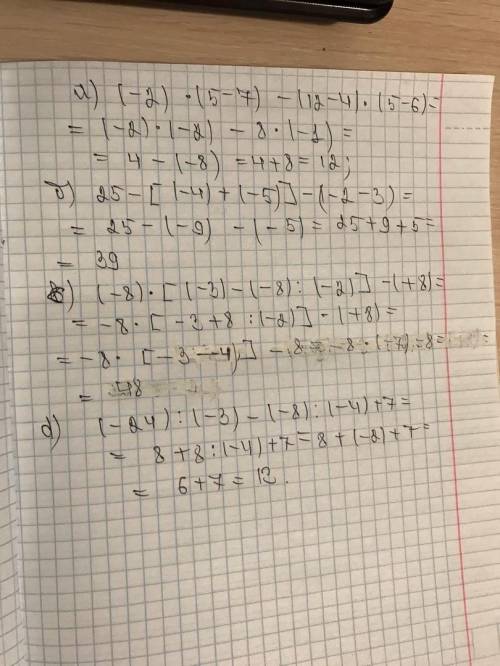 а) (-2) · (5-7) - (12-4) · (5-6) =
= (-2) · (-2) - 8 · (-1) =
= 4 - (-8) = 4+8 = 12;
б) 25 - [(-4) + (-5)] - (-2-3) =
= 25 - (-9) - (-5) = 25+9+5 =
= 39
в) (-8) · [(-3) - (-8) : (-2)] - (+8) =
= -8 · [-3+8 : (-2)] - (+8) =
= -8 · [-3-4)] - 8 = -8 · (-7) - 8 =
= 48
d) (-24) : (-3) - (-8) : (-4) + 7 =
= 8 + 8 : (-4) + 7 = 8 + (-2) + 7 =
= 6 + 7 = 13.